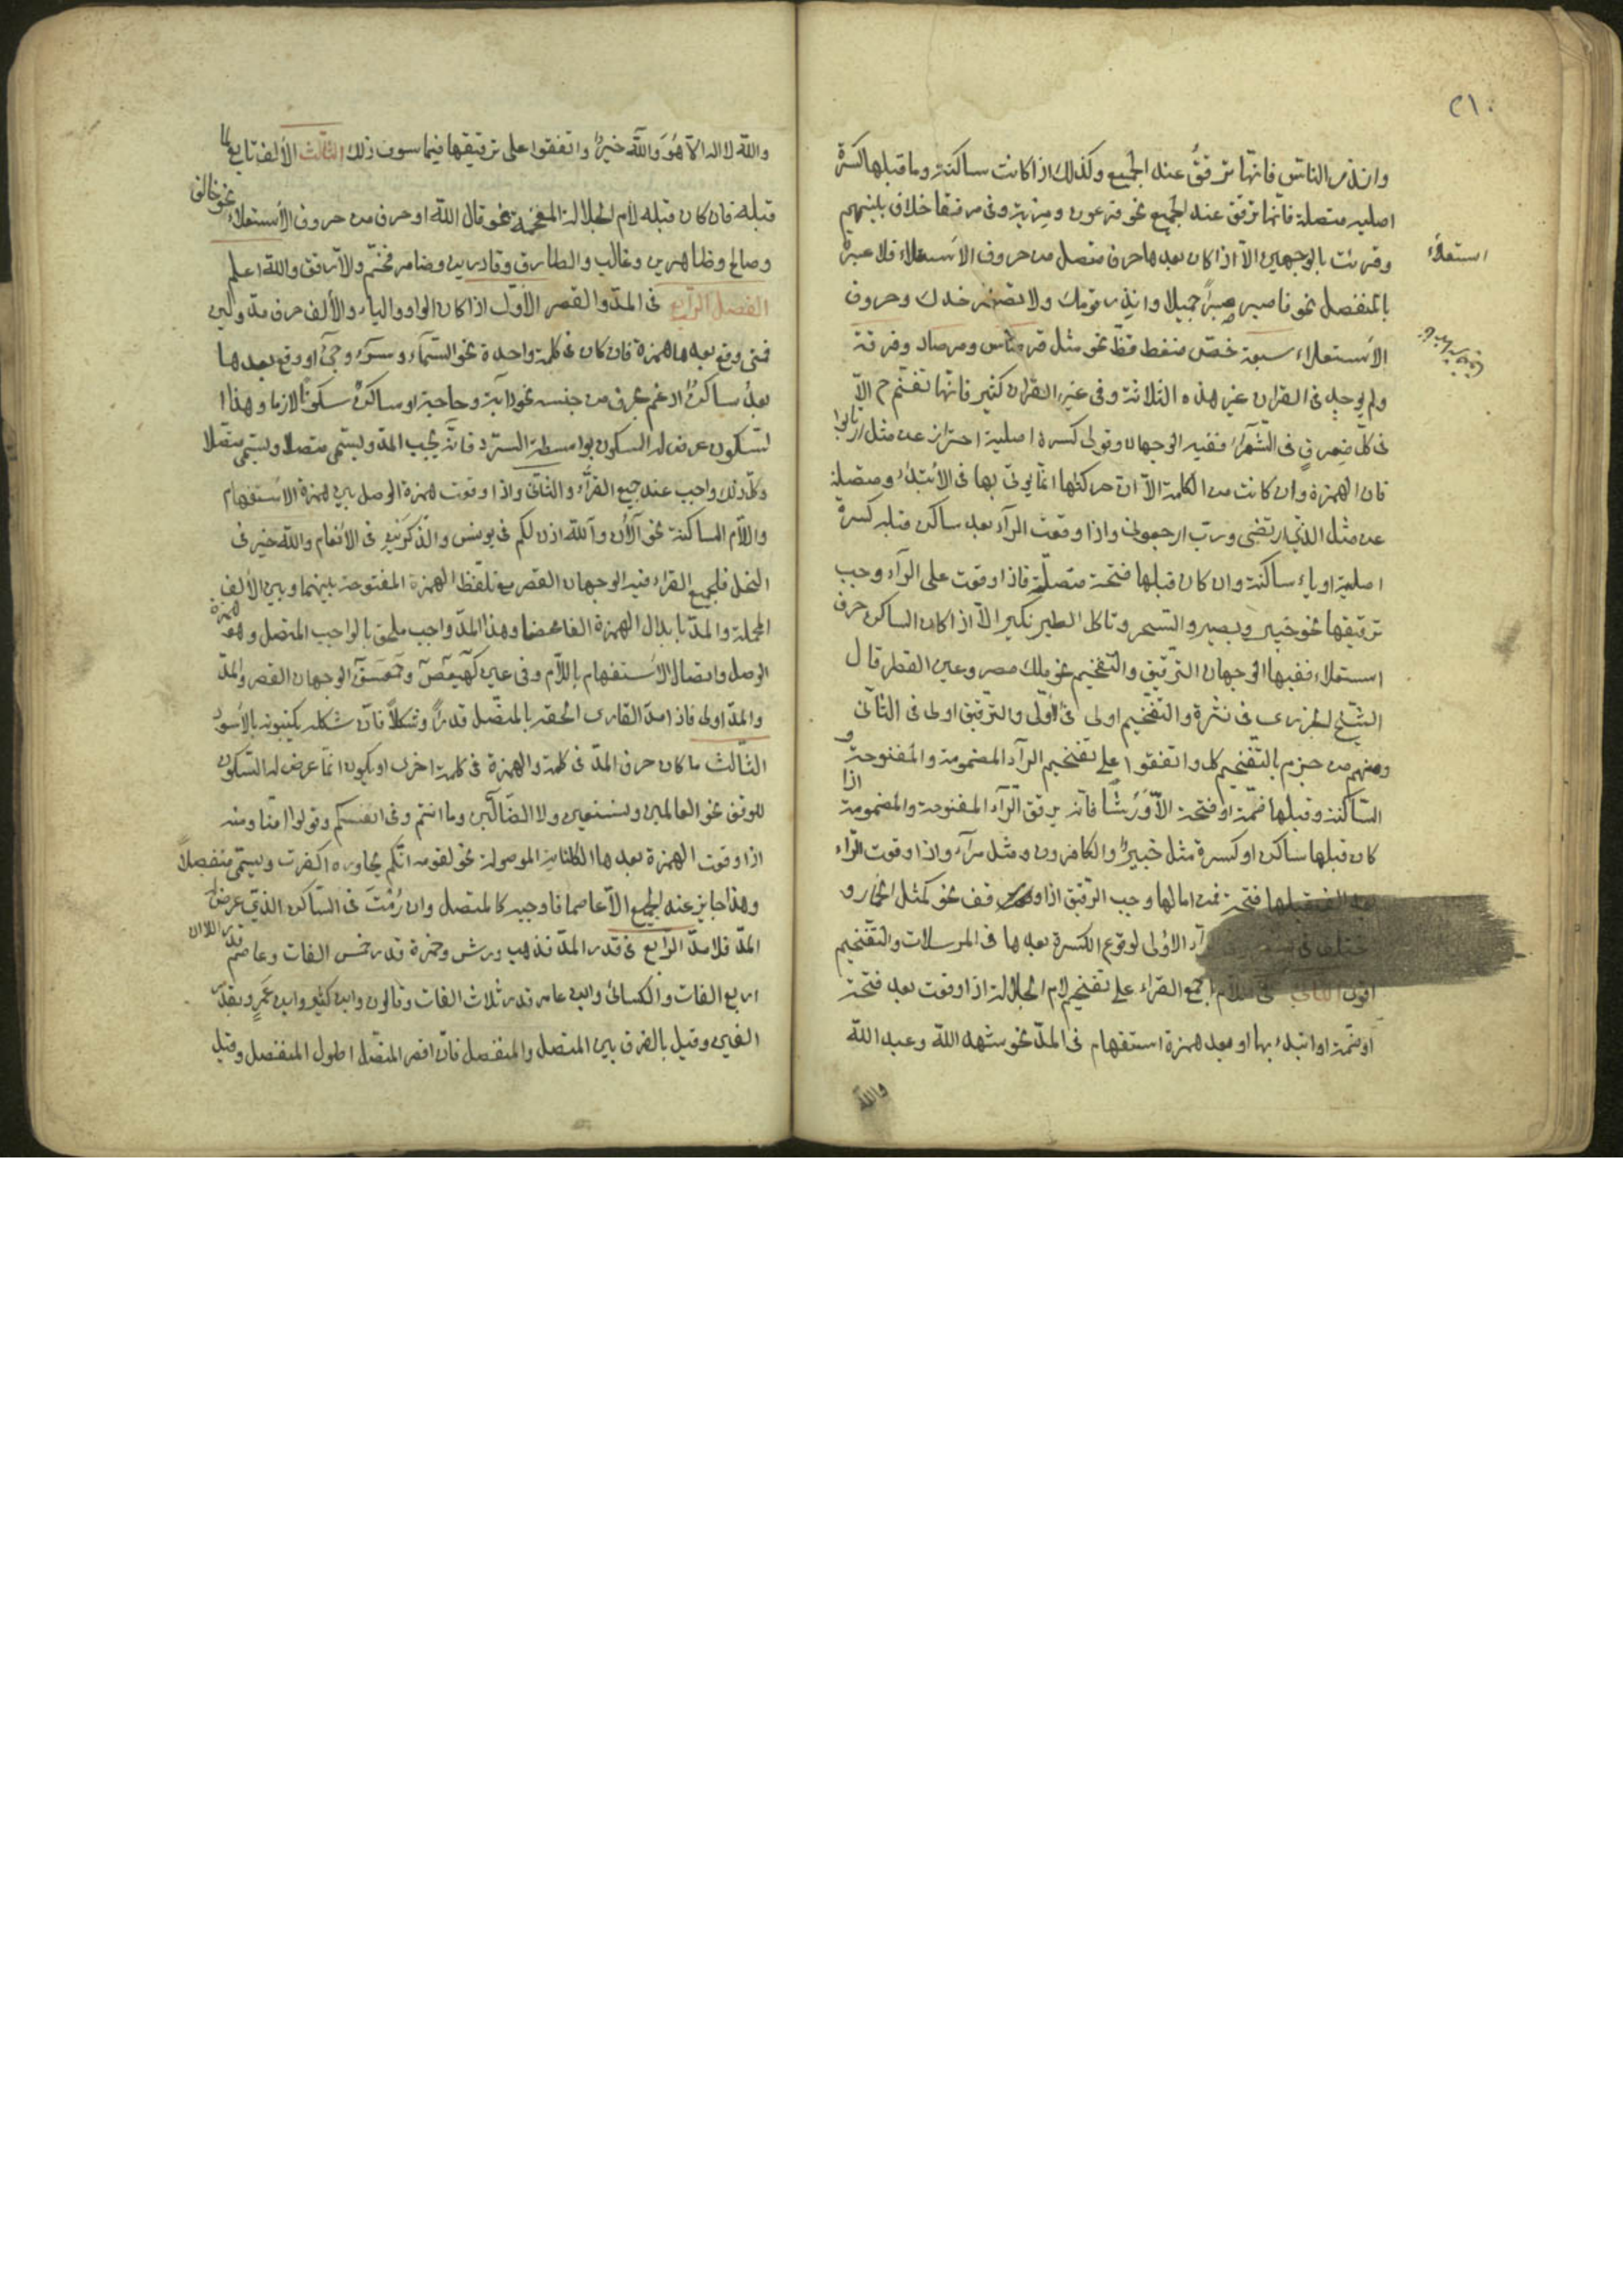 ٢١٠
وانذر الناس فانها ترقق عند الجميع وكذلك اذا كانت ساكنة وما قبلها كسرة
اصليه متصلة فانها ترقق عند الجميع نحو فرعون ومرية وفى مرفقا خلاف بينهم
وقرئت بالوجهين الا اذا كان بعدها حرف متصل من حروف الاستعلاء فلا عبرة
استعلاء
بالمنفصل نحو فاصبر صبرا جميلا وانذر قومك ولا تصعر خدك وحروف
الاستعلاء سبعة خص ضغط قظ نحو مثل قرطاس ومرصاد وفرقة
ولم يوجد فى القرآن غير هذه الثلاثة وفى غير القرآن كثير فانها تفخم ح الا
فى كل فرق فى الشعراء ففيه الوجهان وقولى كسرة اصلية احتراز عن مثل ارتابوا
فان الهمزة وان كانت من الكلمة الا ان حركتها انما يوتى بها فى الأبتداء ومتصلة
عن مثل الذي ارتضى ورب ارجعون واذا وقعت الرآء بعد ساكن قبله كسرة
اصلية او ياء ساكنة وان كان قبلها فتحة متصلة فاذا وقفت على الرآء وجب
ترقيقها نحو خبير وبصير والسحر وتاكل الطير نكير الا اذا كان الساكن حرف
استعلاء ففيها الوجهان الترقيق والتفخيم نحو ملك مصر وعين القطر قال
الشيخ الجزرى فى نشره والتفخيم اولى فى الأولى والترقيق اولى فى الثانى
ومنهم من جزم بالتفخيم كل واتفقوا على تفخيم الرآء المضمومة والمفتوحة و
الساكنة وقبلها ضمة او فتحة الا وَرْشًا فانه يرقق الرآء المفتوحة والمضمومة اذا
كان قبلها ساكن او كسرة مثل خبيرا والكافرون ومثل مرآء واذا وقعت الراء
بعد الف قبلها فتحة فمن امالها وجب الترقيق اذا وقف نحو كمثل الحمار و
رآء الاولى لوقوع الكسرة بعدها فى المرسلات والتفخيم
اقوى الثانى فى اللام اجمع القراء على تفخيم لام الجلالة اذا وقعت بعد فتحة
او ضمة او ابتداء بها او بعد همزة استفهام فى المد نحو شهد الله وعبد الله
والله
والله لا اله الا هو وَالله خير واتفقوا على ترقيقها فيما سوى ذلك الثالث الألف تابع لما
قبله فان كان قبله لام الجلالة المفخمة نحو قال الله او حرف من حروف الأستعلاء نحو خالق
وصالح وظاهرين وغالب والطارق وقادرين وضامر فخم والا رقق والله اعلم
الفصل الرابع فى المد والقصر الأول اذا كان الواو والياء والألف حرف مد ولين
فمتى وقع بعدها همزة فان كان فى كلمة واحدة نحو السماء وسوء وجئ او وقع بعدها
بعدُ ساكن ادغم بحرف من جنسه نحو دآبة وحاجة او ساكن سكونا لازما وهذا
لسكون عرض له السكون بواسطة السرد فانه يجب المد ويسمى متصلا ويسمى متصلا
وكل ذلك واجب عند جميع القراء والثانى واذا وقعت همزة الوصل بين همزة الاستفهام
واللام الساكنة نحو آلآن وآلله اذن لكم فى يونس والذكرين فى الانعام والله خير فى
النمل فلجميع القراء فيه الوجهان القصر مع تلفظ الهمزة المفتوحة بينهما وبين الألف
المحملة والمد بابدال الهمزة الفا محضا وهذا المد واجب ملحق بالواجب المتصل وهو همزة
الوصل واتصال الاستفهام باللام وفى عين كهيعص وحمعسق الوجهان القصر والمد
والمد اولى فاذا مد القارى الحقه بالمتصل قدرًا وشكلاً فان شكله يكتبونه بالأسود
الثالث ما كان حرف المد فى كلمة والهمزة فى كلمة اخرى او يكون انما عرض له السكون
للوقف نحو العالمين ونستعين ولا الضالين وما انتم وفى انفسكم وقولوا امنا ومنه
اذا وقعت الهمزة بعدها الكناية الموصولة نحو لقومه انكم يحاوره اكفرت ويسمى منفصلاً
وهذا جايز عند الجميع الا عاصما فاوجبه كالمتصل وان رُمْتَ فى الساكن الذي عرض
المد فلا مد الرابع فى قدر المد فذهب ورش وحمزة قدر خمس الفات وعاصم قدر
اربع الفات والكسائى وابن عامر قدر ثلاث الفات وقالون وابن كثير وابن عمرو بقدر
الفين وقيل بالفرق بين المتصل والمنفصل فان اقصر المتصل اطول المنفصل وقيل